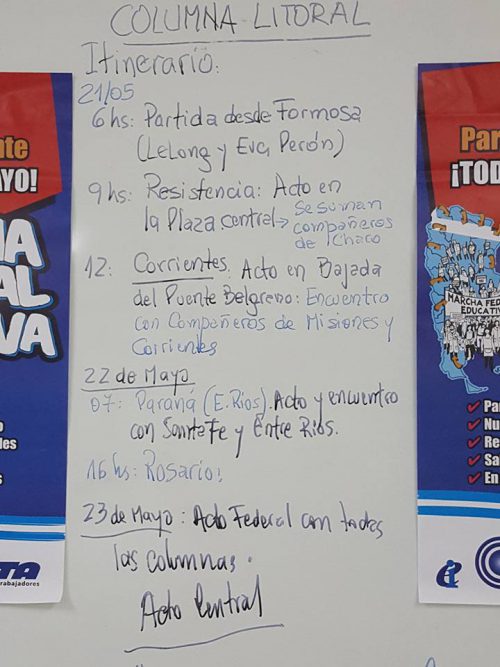 COLUMNA LITORAL
Itinerario:
21/05
6 hs: Partida desde Formosa
(LeLong y Eva Perón)
9 hs: Resistencia: Acto en
la Plaza central → Se suman
compañeros
de Chaco
12: Corrientes. Acto en Bajada
del Puente Belgrano: Encuentro
con Compañeros de Misiones y
Corrientes
22 de Mayo
07: Paraná (E. Rios). Acto y encuentro
con Santa Fe y Entre Rios.
16 hs: Rosario:
23 de Mayo: Acto Federal con todas
las columnas.
Acto Central
nte
YO!
NA
AL
VA
o
les
s
TA
rabajadores
Par
¡TOD
MARCHA
EDUCATIV
Pa
Nu
Re
Sa
En